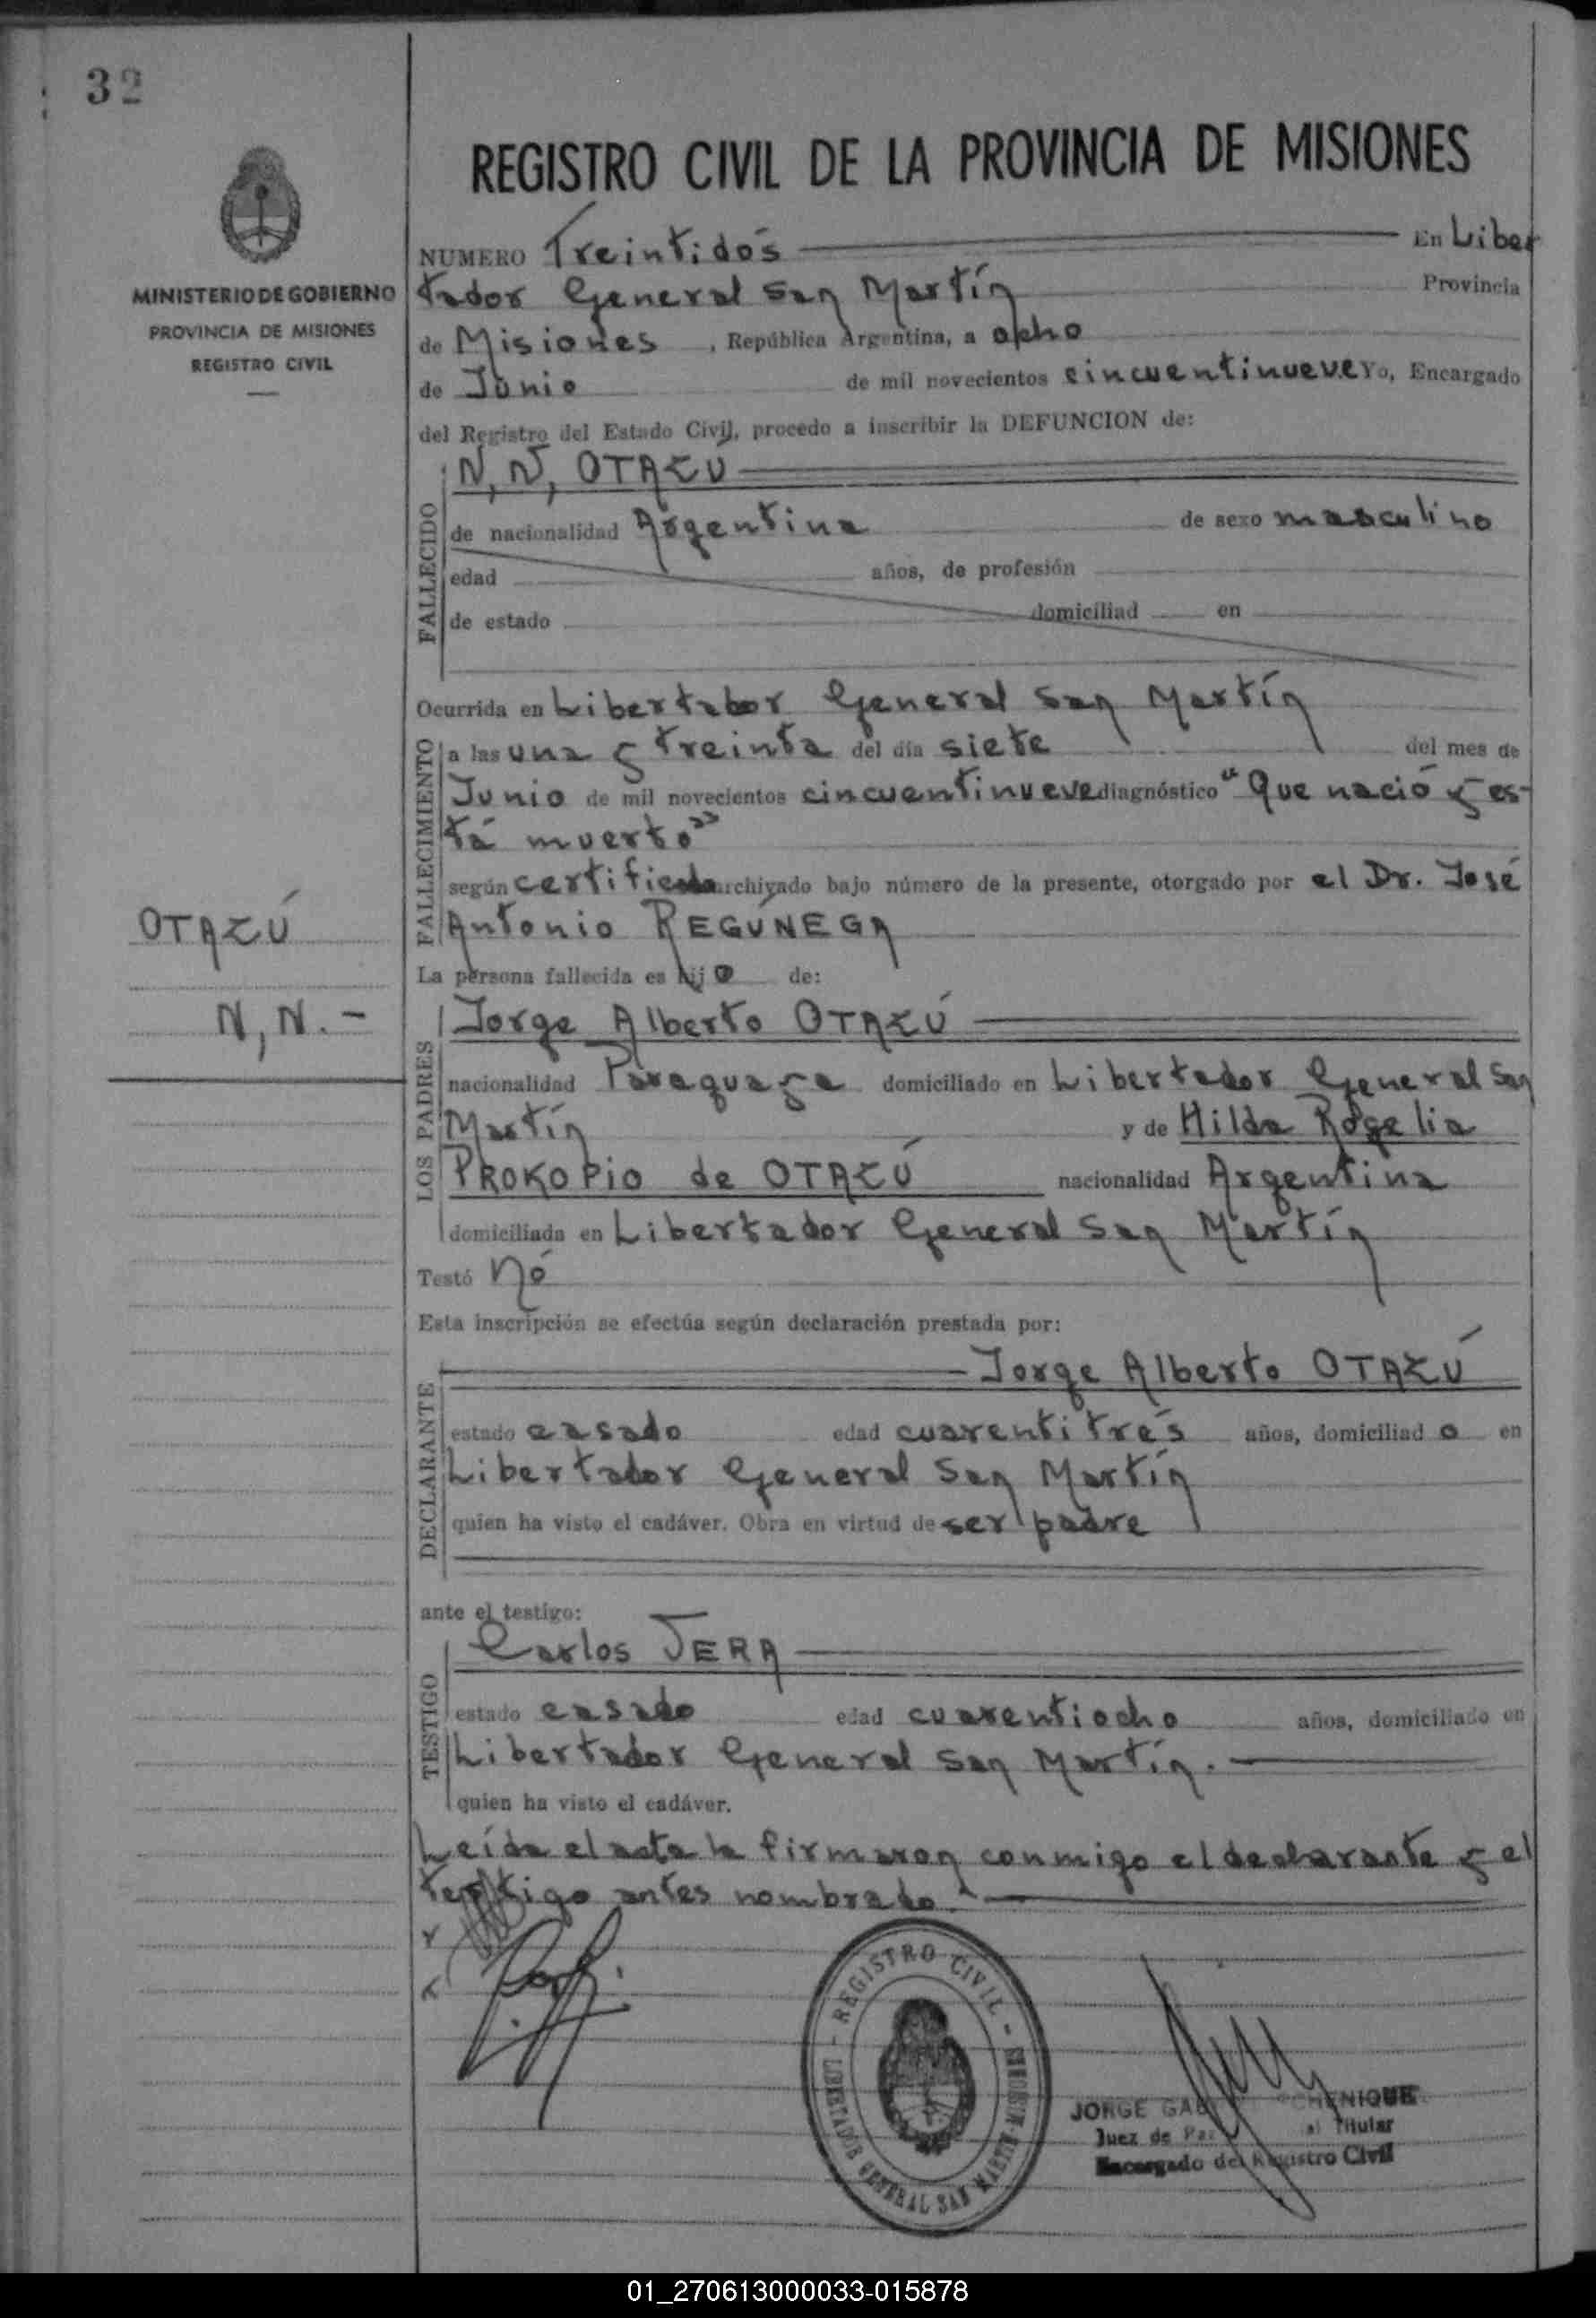 32
REGISTRO CIVIL DE LA PROVINCIA DE MISIONES
MINISTERIO DE GOBIERNO
PROVINCIA DE MISIONES
REGISTRO CIVIL
NUMERO Treintidós En Liber
tador General San Martín Provincia
de Misiones , República Argentina, a ocho
de Junio de mil novecientos cincuentinueve Yo, Encargado
del Registro del Estado Civil, procedo a inscribir la DEFUNCION de:
N, N, OTAZÚ
FALLECIDO
de nacionalidad Argentina de sexo masculino
edad años, de profesión
de estado domiciliad en
Ocurrida en Libertador General San Martín
FALLECIMIENTO
a las una y treinta del día siete del mes de
Junio de mil novecientos cincuentinueve diagnóstico "Que nació y es-
tá muerto"
según certificado archivado bajo número de la presente, otorgado por el Dr. José
Antonio REGÚNEGA
OTAZÚ
N, N. -
La persona fallecida es hijo de:
LOS PADRES
Jorge Alberto OTAZÚ
nacionalidad Paraguaya domiciliado en Libertador General San
Martín y de Hilda Rogelia
PROKOPIO de OTAZÚ nacionalidad Argentina
domiciliada en Libertador General San Martín
Testó Nó
Esta inscripción se efectúa según declaración prestada por:
DECLARANTE
Jorge Alberto OTAZÚ
estado casado edad cuarentitrés años, domiciliado en
Libertador General San Martín
quien ha visto el cadáver. Obra en virtud de ser padre
ante el testigo:
TESTIGO
Carlos JERA
estado casado edad cuarentiocho años, domiciliado en
Libertador General San Martín.
quien ha visto el cadáver.
Leída el acta la firmaron conmigo el declarante y el
testigo antes nombrado.-
- REGISTRO CIVIL -
LIBERTADOR GENERAL SAN MARTIN - MISIONES
JORGE
Juez de Paz Titular
Encargado del Registro Civil
01_270613000033-015878